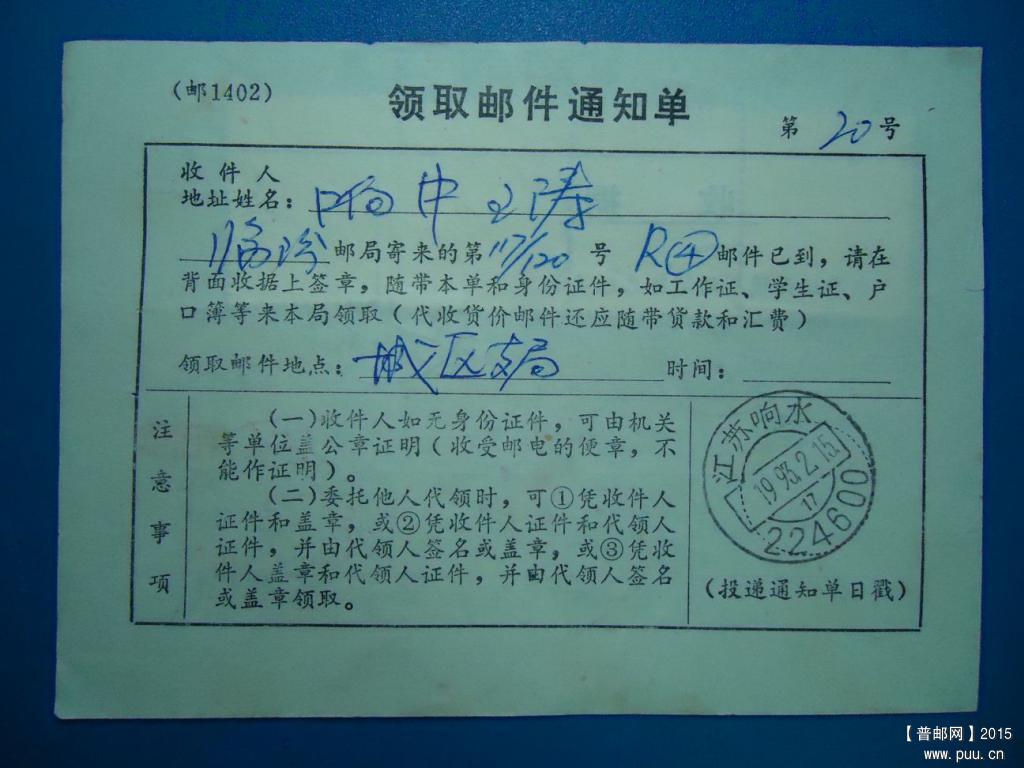 (邮1402)
领取邮件通知单
第 20 号
收件人
地址姓名：响中 王涛
临汾邮局寄来的第117/120号 R④邮件已到，请在
背面收据上签章，随带本单和身份证件，如工作证、学生证、户
口簿等来本局领取（代收货价邮件还应随带货款和汇费）
领取邮件地点：城区支局 时间：
注意事项
（一）收件人如无身份证件，可由机关
等单位盖公章证明（收受邮电的便章，不
能作证明）。
（二）委托他人代领时，可①凭收件人
证件和盖章，或②凭收件人证件和代领人
证件，并由代领人签名或盖章，或③凭收
件人盖章和代领人证件，并由代领人签名
或盖章领取。
江苏响水
1993.2.15.
17
224600
（投递通知单日戳）
【普邮网】2015
www.puu.cn